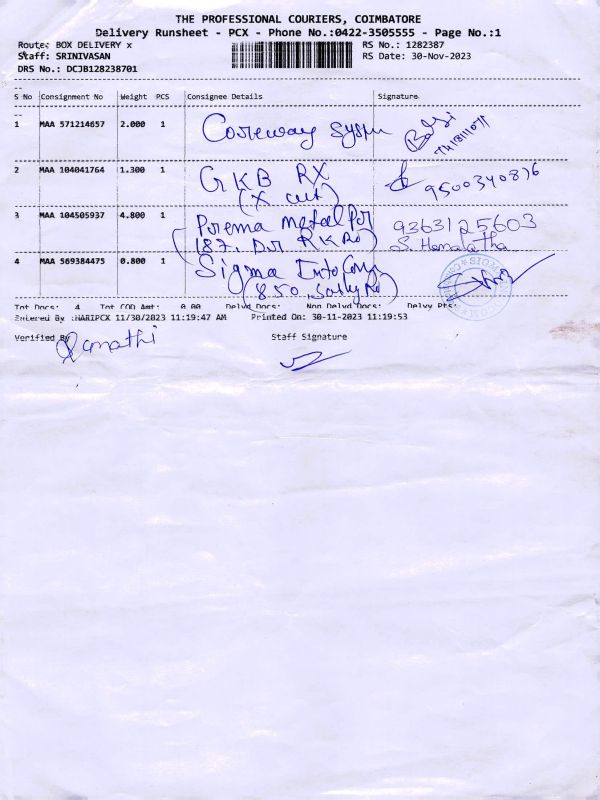 THE PROFESSIONAL COURIERS, COIMBATORE
Delivery Runsheet - PCX - Phone No.:0422-3505555 - Page No.:1
Route: BOX DELIVERY x RS No.: 1282387
Staff: SRINIVASAN RS Date: 30-Nov-2023
DRS No.: DCJB128238701
S No Consignment No Weight PCS Consignee Details Signature
1 MAA 571214657 2.000 1
2 MAA 104041764 1.300 1 GKB RX 9500340876
(X cut)
3 MAA 104505937 4.800 1 Prema Metal Por 9363125603
187, DR RK Rd) S. Hemalatha
4 MAA 569384475 0.800 1 Sigma
(850, Sathy Rd)
Tot Docs: 4 Tot COD Amt: 0.00 Delvd Docs: Non Delvd Docs: Delvy Pts:
Entered By :HARIPCX 11/30/2023 11:19:47 AM Printed On: 30-11-2023 11:19:53
Verified By Staff Signature